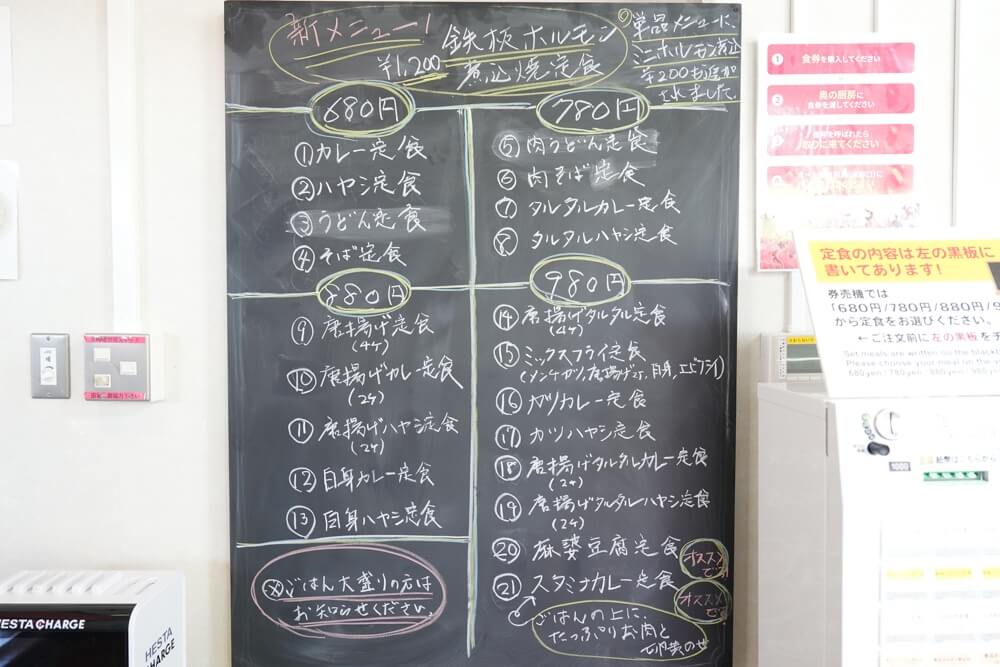 新メニュー!
鉄板ホルモン
¥1,200 煮込焼定食
◎単品メニューに、
ミニホルモン煮込
¥200お追加
されました。
680円
①カレー定食
②ハヤシ定食
③うどん定食
④そば定食
780円
⑤肉うどん定食
⑥肉そば定食
⑦タルタルカレー定食
⑧タルタルハヤシ定食
880円
⑨唐揚げ定食
(4ケ)
⑩唐揚げカレー定食
(2ケ)
⑪唐揚げハヤシ定食
(2ケ)
⑫白身カレー定食
⑬白身ハヤシ定食
※ごはん大盛りの方は
お知らせください。
980円
⑭唐揚げタルタル定食
(2ケ)
⑮ミックスフライ定食
(メンチカツ,唐揚げ2ケ,白身,エビフライ)
⑯カツカレー定食
⑰カツハヤシ定食
⑱唐揚げタルタルカレー定食
(2ケ)
⑲唐揚げタルタルハヤシ定食
(2ケ)
⑳麻婆豆腐定食
オススメです
㉑スタミナカレー定食
オススメです
ごはんの上に、
たっぷりお肉と
卵黄のせ
1 食券を購入してください
2 奥の厨房に
食券を渡してください
3 番号を呼ばれたら
取りに来てください
定食の内容は左の黒板に
書いてあります!
券売機では
「680円/780円/880円/9
から定食をお選びください。
←ご注文前に左の黒板を
Set meals are written on the blackb
Please choose your meal on the
680yen/780yen/880yen/980yen
1000
紙幣はこちらから
HESTA CHARGE
HESTA
CHARGE